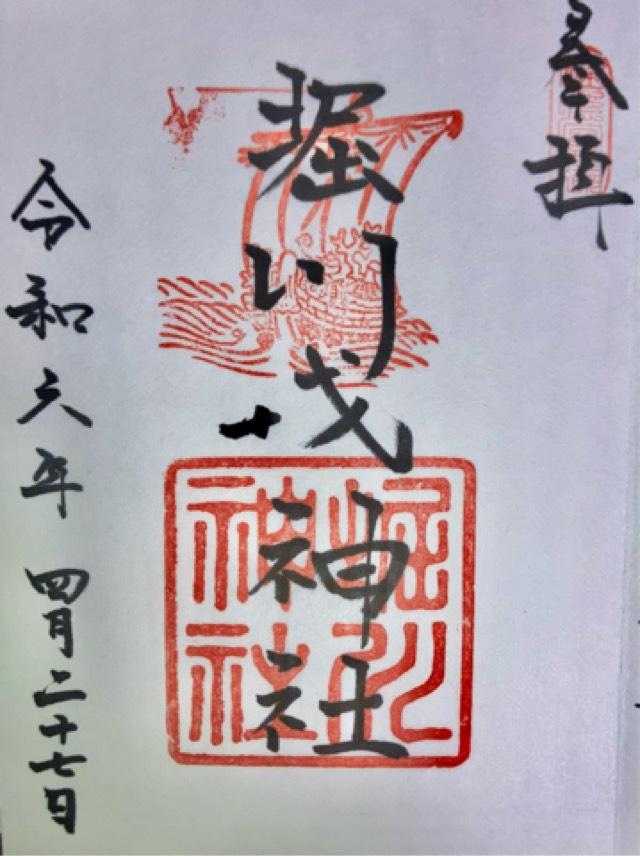 参拝
堀川戎神社
堀川神社
令和六年 四月二十七日